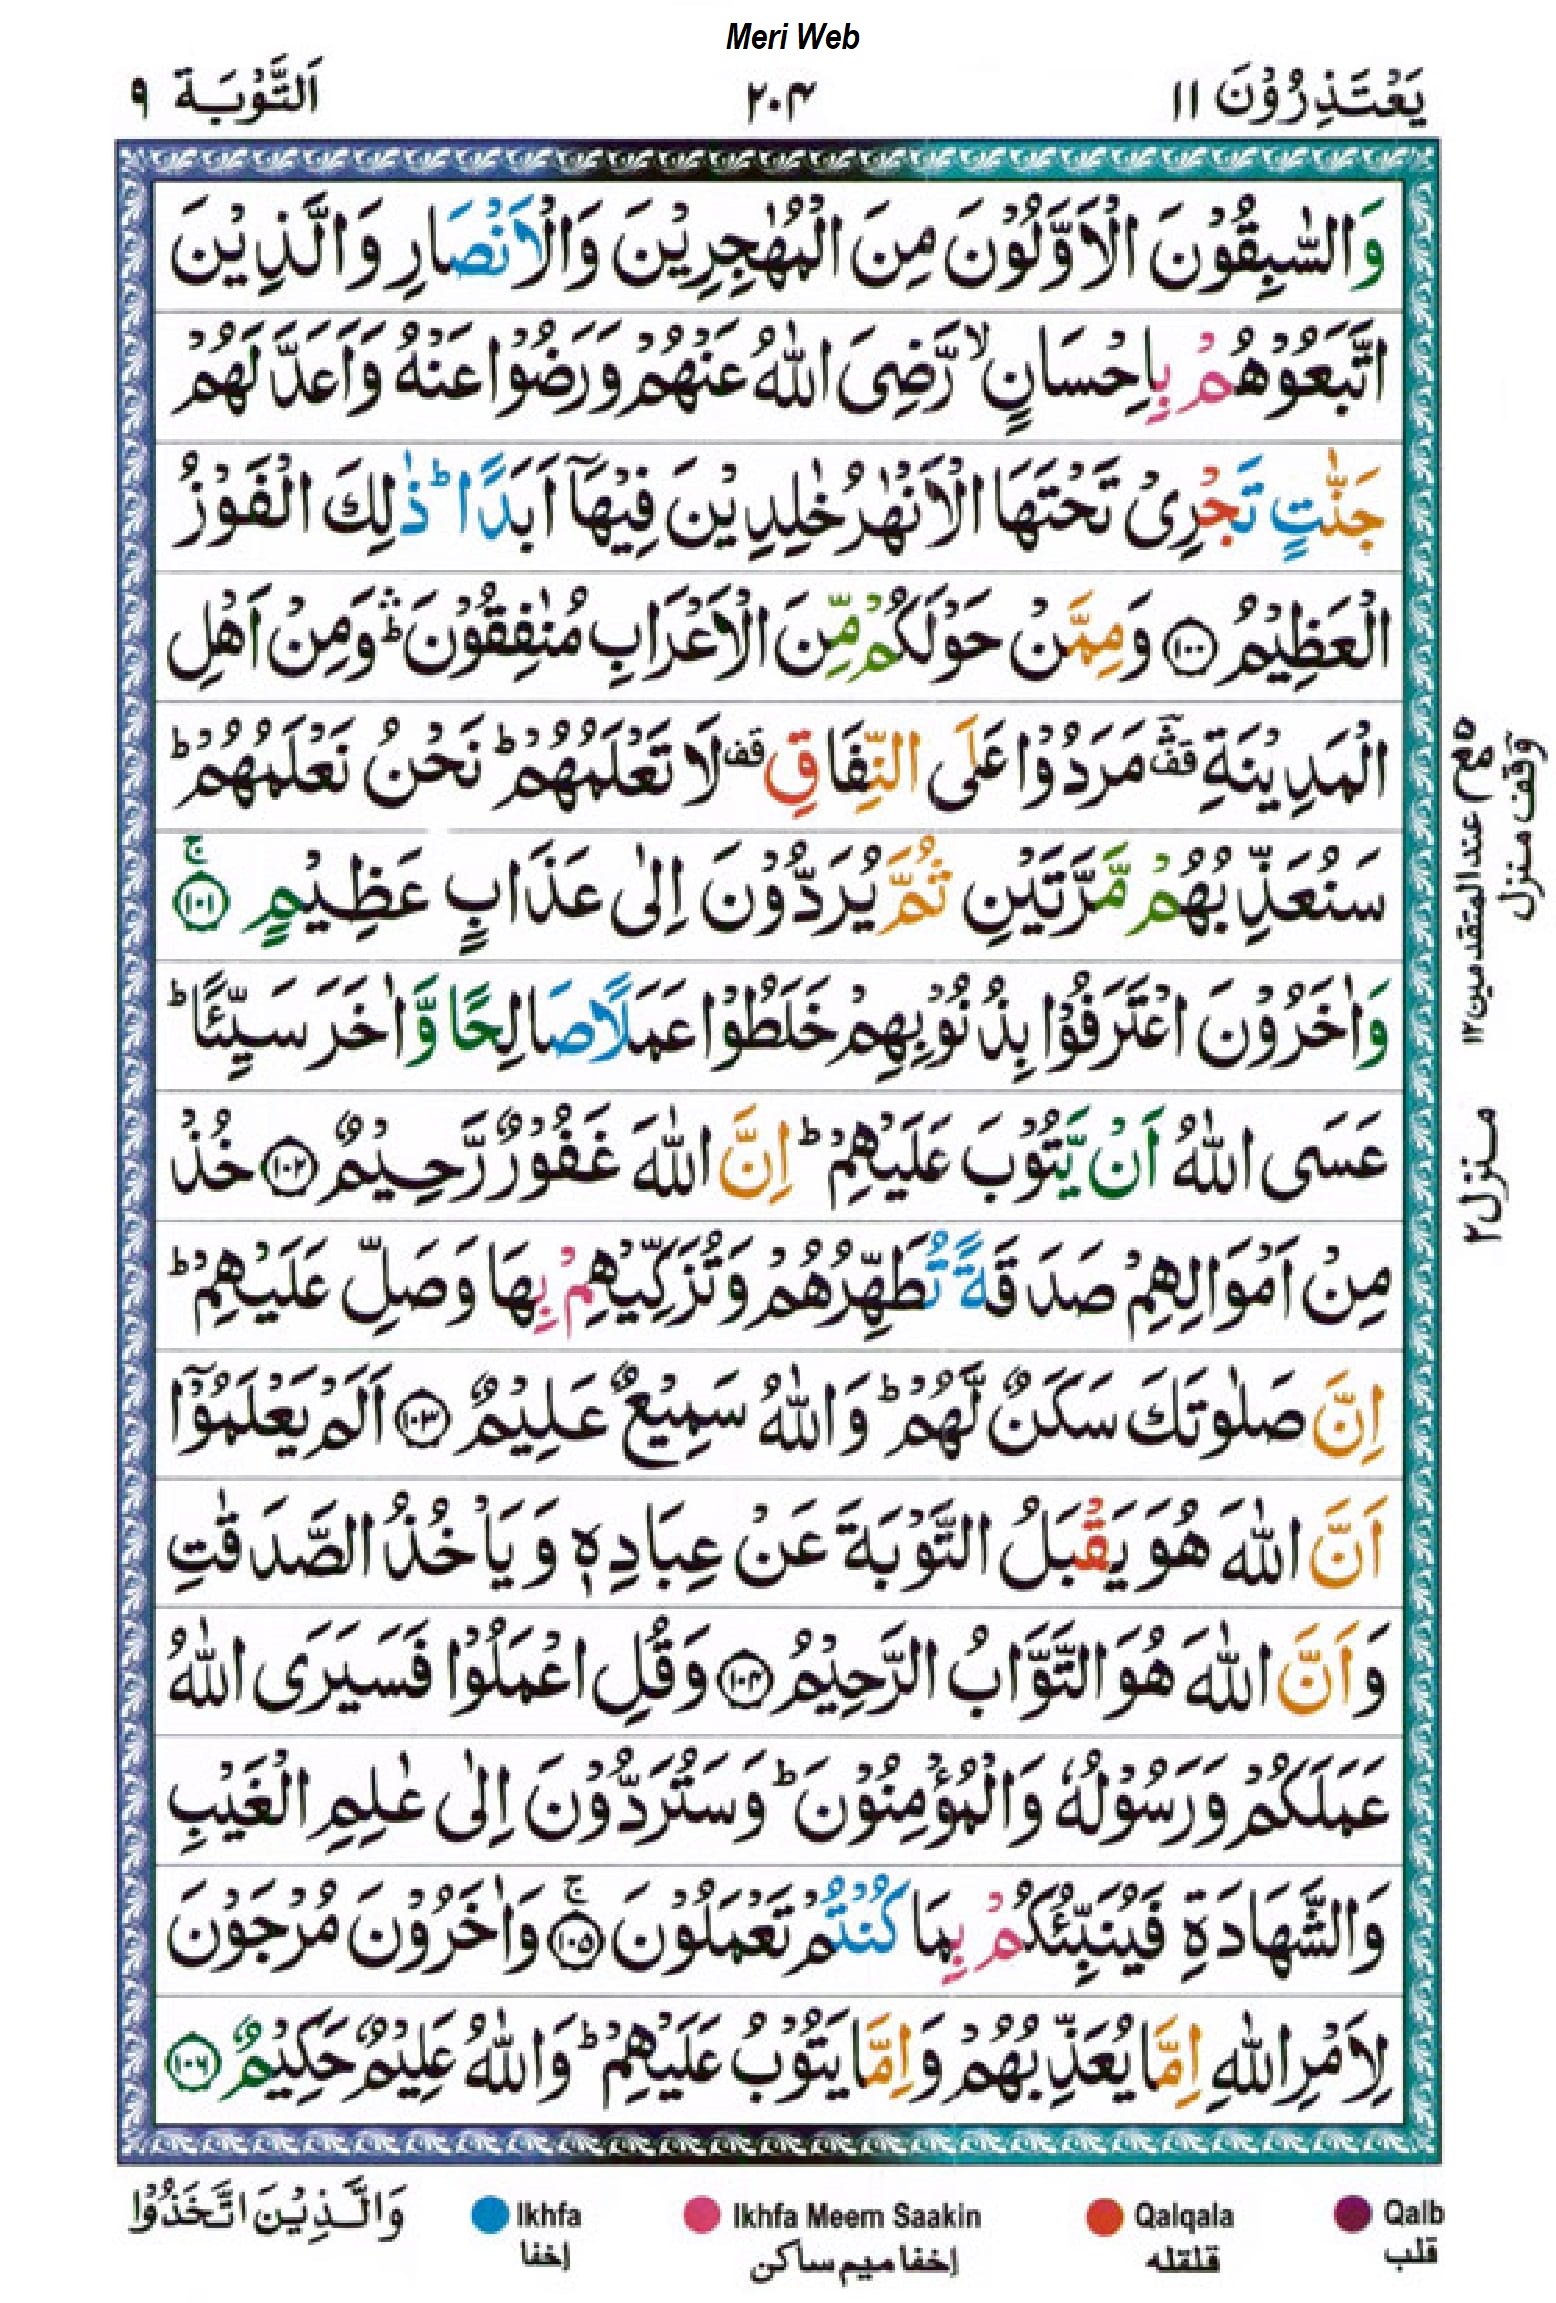 Meri Web
يَعْتَذِرُوْنَ ١١
٢٠۴
اَلتَّوْبَة ٩
وَالسّٰبِقُوْنَ الْاَوَّلُوْنَ مِنَ الْمُهٰجِرِيْنَ وَالْاَنْصَارِ وَالَّذِيْنَ
اتَّبَعُوْهُمْ بِاِحْسَانٍ ۙ رَّضِىَ اللّٰهُ عَنْهُمْ وَرَضُوْا عَنْهُ وَاَعَدَّ لَهُمْ
جَنّٰتٍ تَجْرِىْ تَحْتَهَا الْاَنْهٰرُ خٰلِدِيْنَ فِيْهَآ اَبَدًا ؕ ذٰلِكَ الْفَوْزُ
الْعَظِيْمُ ﴿١٠٠﴾ وَمِمَّنْ حَوْلَكُمْ مِّنَ الْاَعْرَابِ مُنٰفِقُوْنَ ۛؕ وَمِنْ اَهْلِ
الْمَدِيْنَةِ ۛقف مَرَدُوْا عَلَى النِّفَاقِ قف لَا تَعْلَمُهُمْ ؕ نَحْنُ نَعْلَمُهُمْ ؕ
سَنُعَذِّبُهُمْ مَّرَّتَيْنِ ثُمَّ يُرَدُّوْنَ اِلٰى عَذَابٍ عَظِيْمٍ ﴿١٠١﴾ ۚ
وَاٰخَرُوْنَ اعْتَرَفُوْا بِذُنُوْبِهِمْ خَلَطُوْا عَمَلًا صَالِحًا وَّاٰخَرَ سَيِّئًا ؕ
عَسَى اللّٰهُ اَنْ يَّتُوْبَ عَلَيْهِمْ ؕ اِنَّ اللّٰهَ غَفُوْرٌ رَّحِيْمٌ ﴿١٠٢﴾ خُذْ
مِنْ اَمْوَالِهِمْ صَدَقَةً تُطَهِّرُهُمْ وَتُزَكِّيْهِمْ بِهَا وَصَلِّ عَلَيْهِمْ ؕ
اِنَّ صَلٰوتَكَ سَكَنٌ لَّهُمْ ؕ وَاللّٰهُ سَمِيْعٌ عَلِيْمٌ ﴿١٠٣﴾ اَلَمْ يَعْلَمُوْٓا
اَنَّ اللّٰهَ هُوَ يَقْبَلُ التَّوْبَةَ عَنْ عِبَادِهٖ وَيَاْخُذُ الصَّدَقٰتِ
وَاَنَّ اللّٰهَ هُوَ التَّوَّابُ الرَّحِيْمُ ﴿١٠۴﴾ وَقُلِ اعْمَلُوْا فَسَيَرَى اللّٰهُ
عَمَلَكُمْ وَرَسُوْلُهٗ وَالْمُؤْمِنُوْنَ ؕ وَسَتُرَدُّوْنَ اِلٰى عٰلِمِ الْغَيْبِ
وَالشَّهَادَةِ فَيُنَبِّئُكُمْ بِمَا كُنْتُمْ تَعْمَلُوْنَ ﴿١٠٥﴾ ۚ وَاٰخَرُوْنَ مُرْجَوْنَ
لِاَمْرِ اللّٰهِ اِمَّا يُعَذِّبُهُمْ وَاِمَّا يَتُوْبُ عَلَيْهِمْ ؕ وَاللّٰهُ عَلِيْمٌ حَكِيْمٌ ﴿١٠٦﴾
وقف منزل
عند المتقدمين ١٢
منزل ٢
Qalb
قلب
Qalqala
قلقله
Ikhfa Meem Saakin
إخفا ميم ساكن
Ikhfa
إخفا
وَالَّذِيْنَ اتَّخَذُوْا